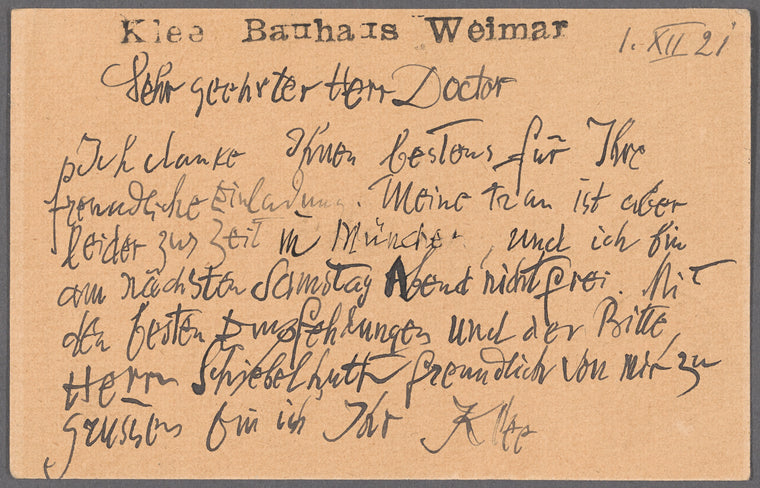 Klee Bauhaus Weimar
1. XII 21
Sehr geehrter Herr Doctor
Ich danke Ihnen bestens für Ihre
freundliche Einladung. Meine Frau ist aber
leider zur Zeit in München, und ich bin
am nächsten Samstag Abend nicht frei. Mit
den besten Empfehlungen und der Bitte
Herrn Schiebelhuth freundlich von mir zu
grüssen bin ich Ihr Klee